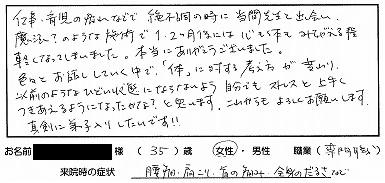 仕事・育児の疲れなどで絶不調の時に当間先生と出会い、
魔法?のような施術で1、2ヶ月後には心も体もみちがえる程
軽くなってしまいました。本当にありがとうございました。
色々とお話ししていく中で、「体」に対する考え方が変わり、
以前のようなひどい状態にならないよう自分でもストレスと上手く
つきあえるようになったかな?と思います。これからもよろしくお願いします。
真剣に弟子入りしたいです!!
お名前 様 (35)歳 女性・男性 職業(専門職)
来院時の症状 腰痛・肩こり・首の痛み・全身のだるさなど